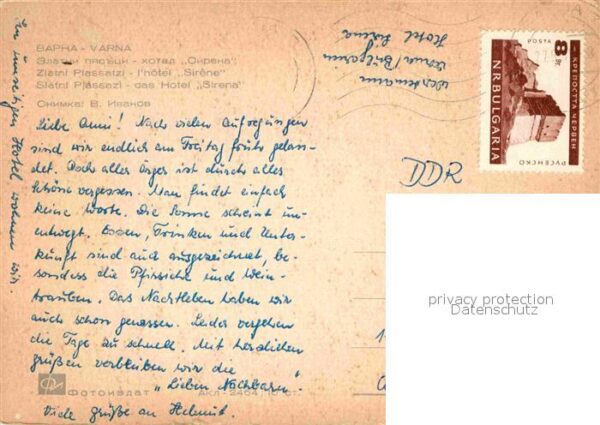 ВАРНА - VARNA
Златни пясъци - хотел „Сирена"
Zlatni Plassatzi - l'hôtel „Sirène"
Slatni Pjássazi - das Hotel „Sirena"
Снимка: В. Иванов
Liebe Omi! Nach vielen Aufregungen
sind wir endlich am Freitag früh gelan-
det. Doch aller Ärger ist durch alles
Schöne vergessen. Man findet einfach
keine Worte. Die Sonne scheint un-
entwegt. Essen, Trinken und Unter-
kunft sind auch ausgezeichnet, be-
sonders die Pfirsiche und Wein-
trauben. Das Nachtleben haben wir
auch schon genossen. Leider vergehen
die Tage zu schnell. Mit herzlichen
Grüßen verbleiben wir die
„Lieben Nachbarn".
Viele Grüße an Helmut.
In unseligen Hotel wohnen wir.
Фотоиздат
АКЛ - 2464
Varna/Bulgarien
Hotel Sirena
DDR
8 ст.
КРЕПОСТТА ЧЕРВЕН
NRBULGARIA
РУСЕНСКО
privacy protection
Datenschutz